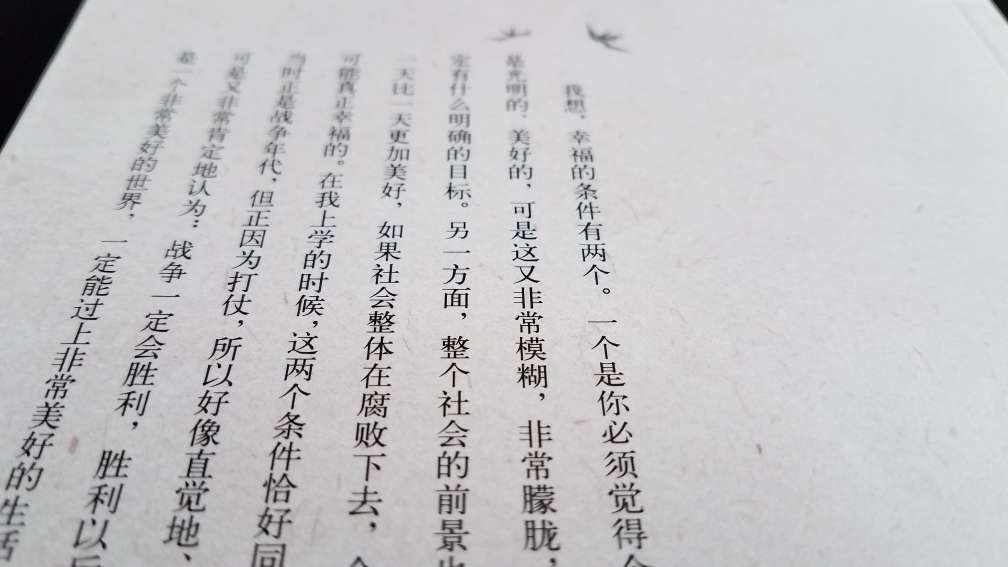 我想，幸福的条件有两个。一个是你必须觉得
是光明的、美好的，可是这又非常模糊，非常朦胧，
定有什么明确的目标。另一方面，整个社会的前景也
一天比一天更加美好，如果社会整体在腐败下去，
可能真正幸福的。在我上学的时候，这两个条件恰好同
当时正是战争年代，但正因为打仗，所以好像直觉地、
可是又非常肯定地认为：战争一定会胜利，胜利以后
是一个非常美好的世界，一定能过上非常美好的生活